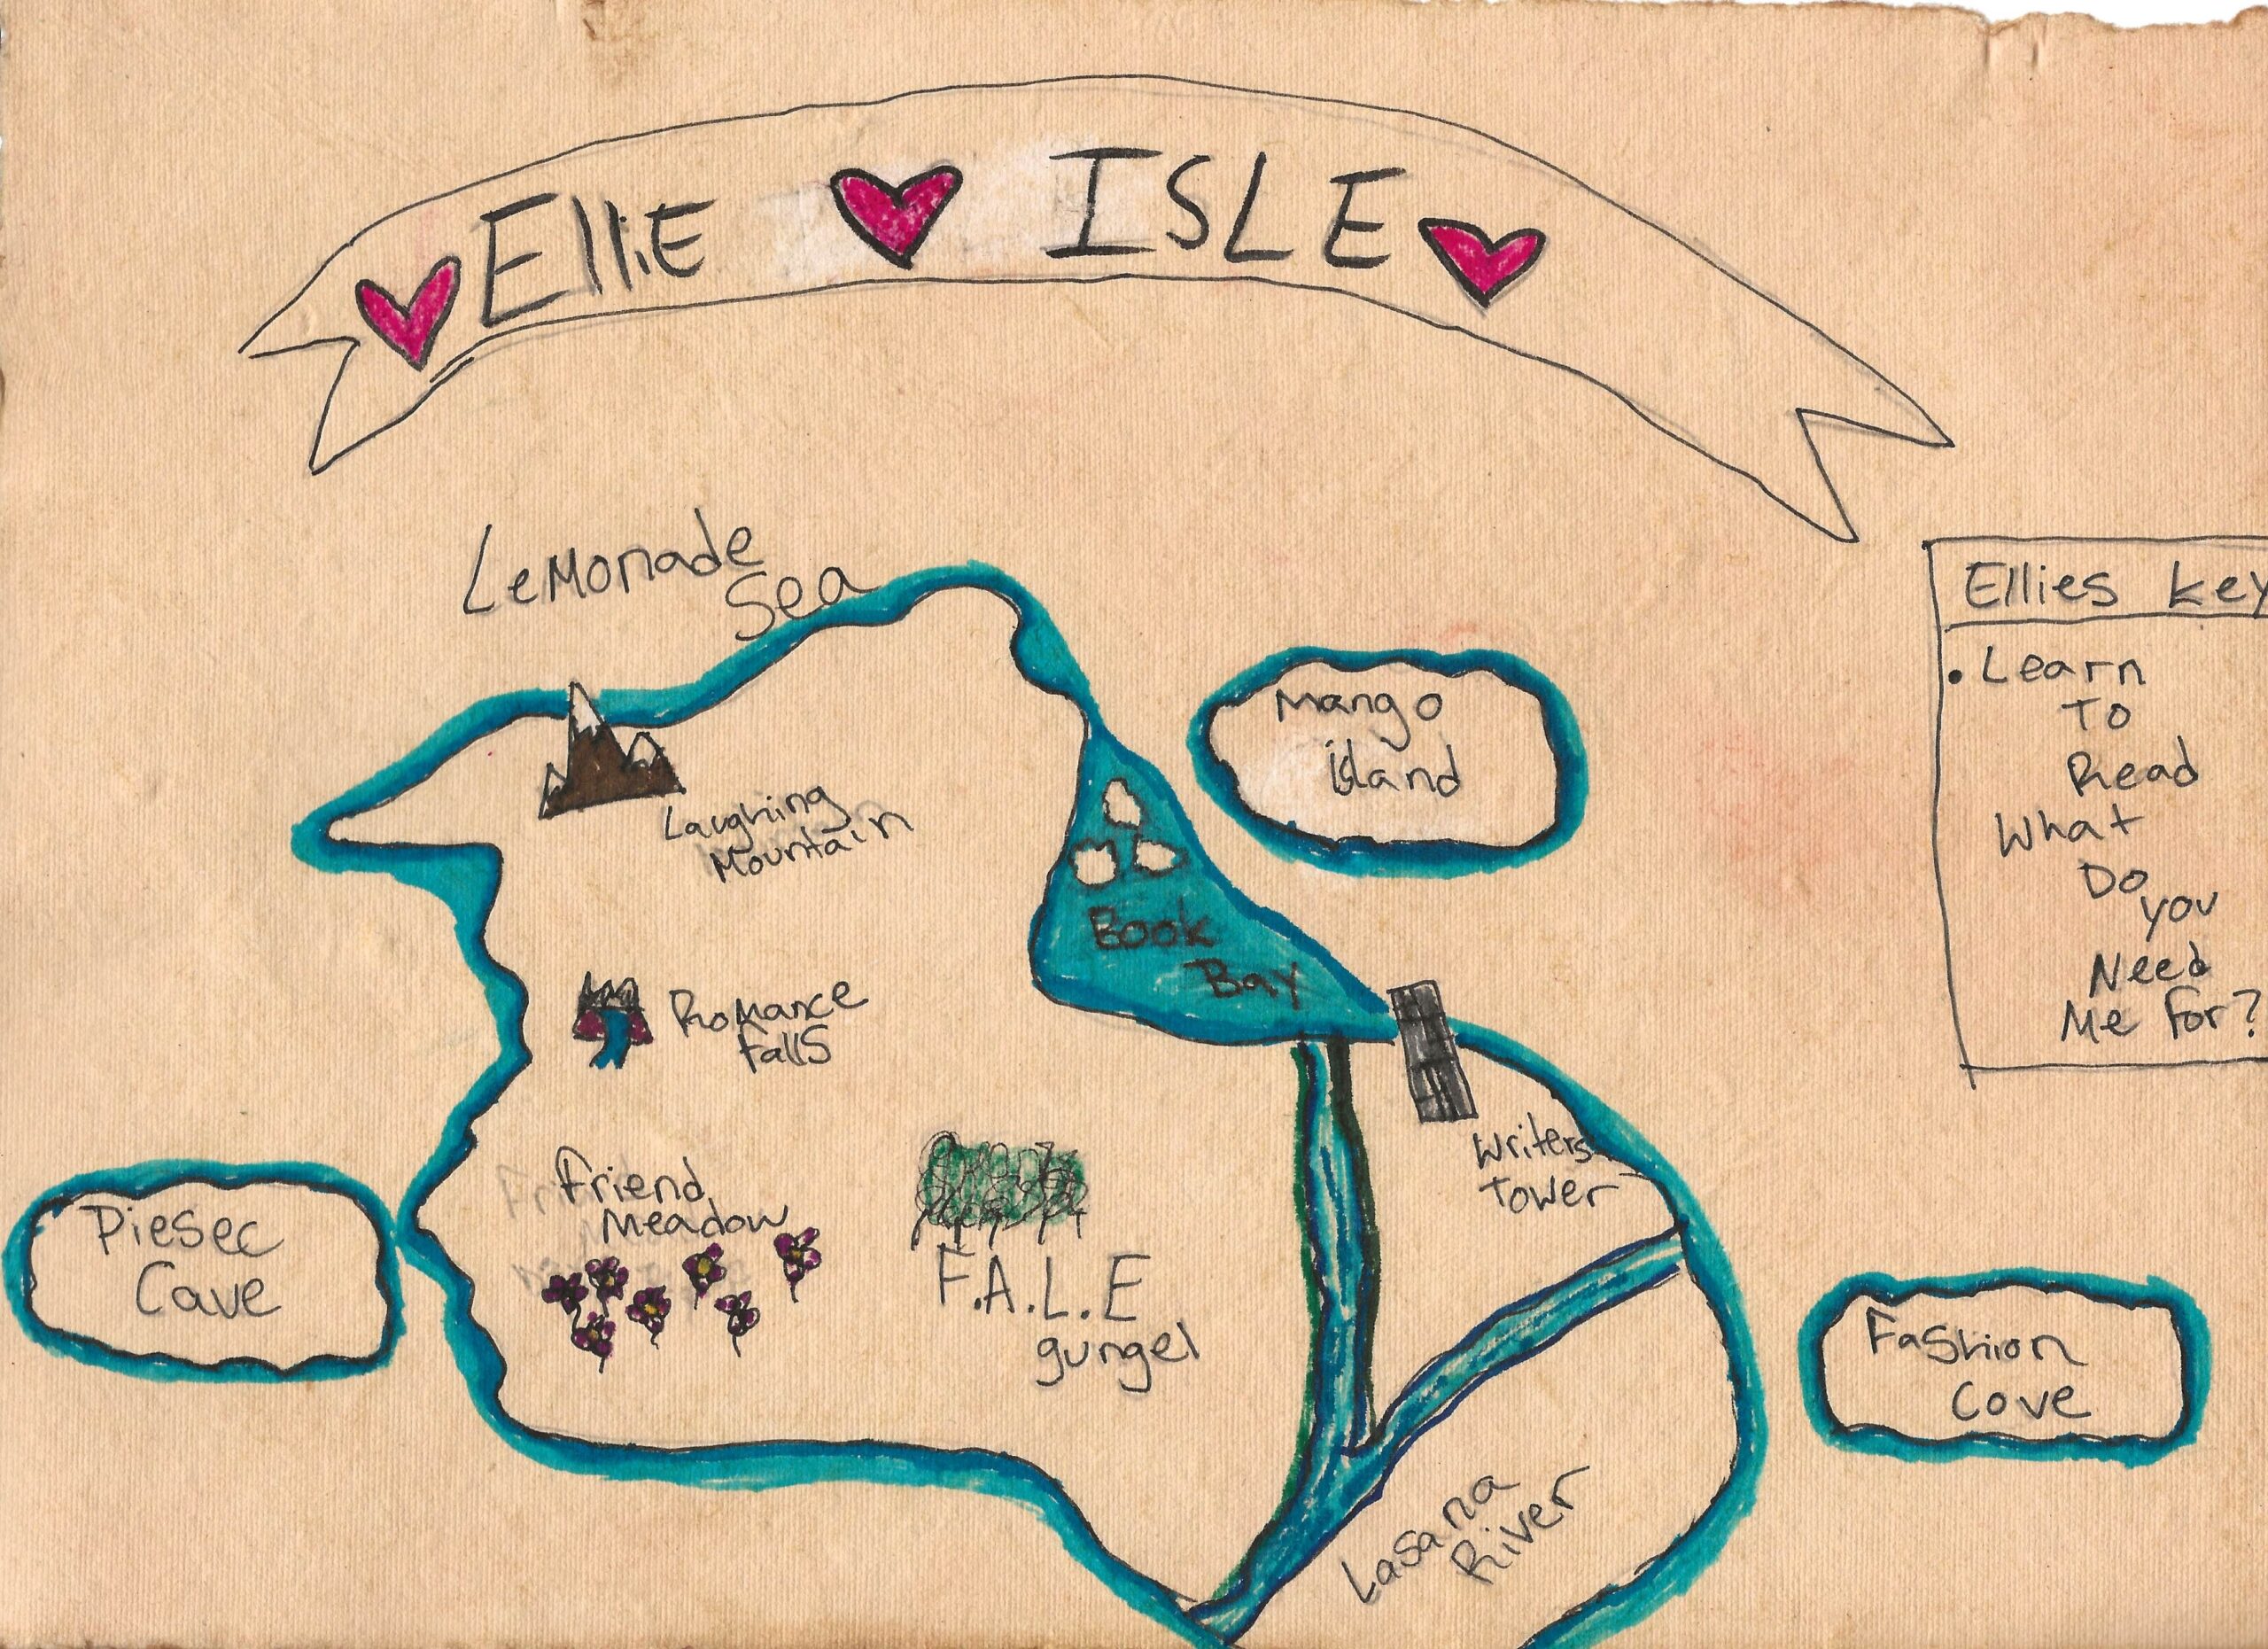 EllIE ISLE
LeMonade
Sea
Mango
island
Ellies key
• Learn
To
Read
What
Do
you
Need
Me for?
Laughing
Mountain
Book
Bay
Romance
Falls
Writers
Tower
Friend
Meadow
Piesec
Cave
F.A.L.E
gungel
Fashion
Cove
Lasana
River